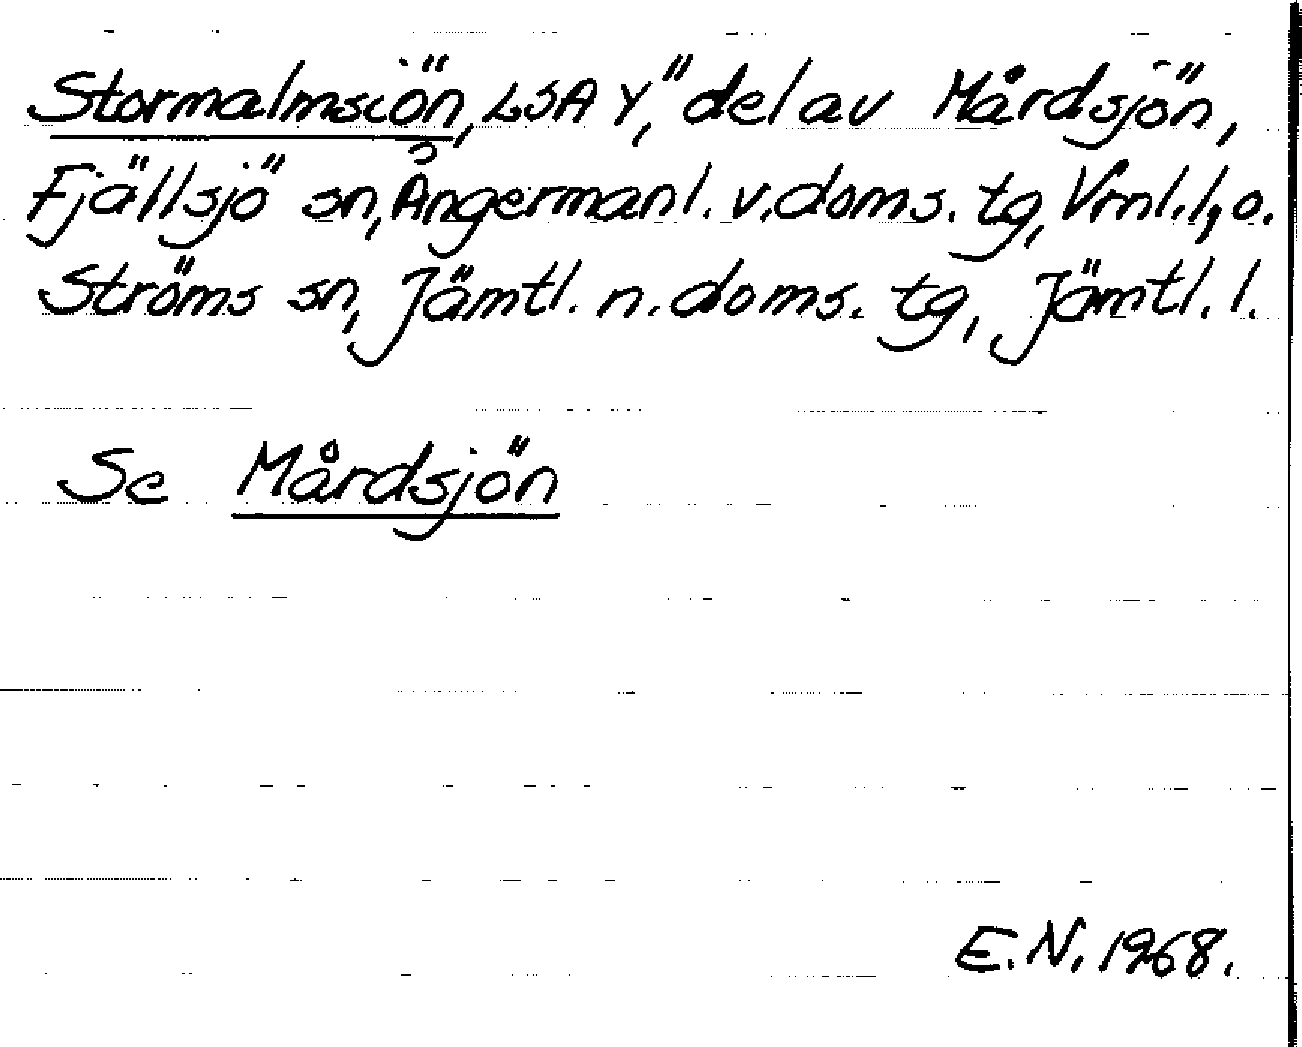 Stormalmsjön, LSA Y, "del av Mårdsjön,
Fjällsjö sn, Ångermanl. v. doms. tg, Vrnl. l, o.
Ströms sn, Jämtl. n. doms. tg, Jämtl. l.
Se Mårdsjön
E. N. 1968.